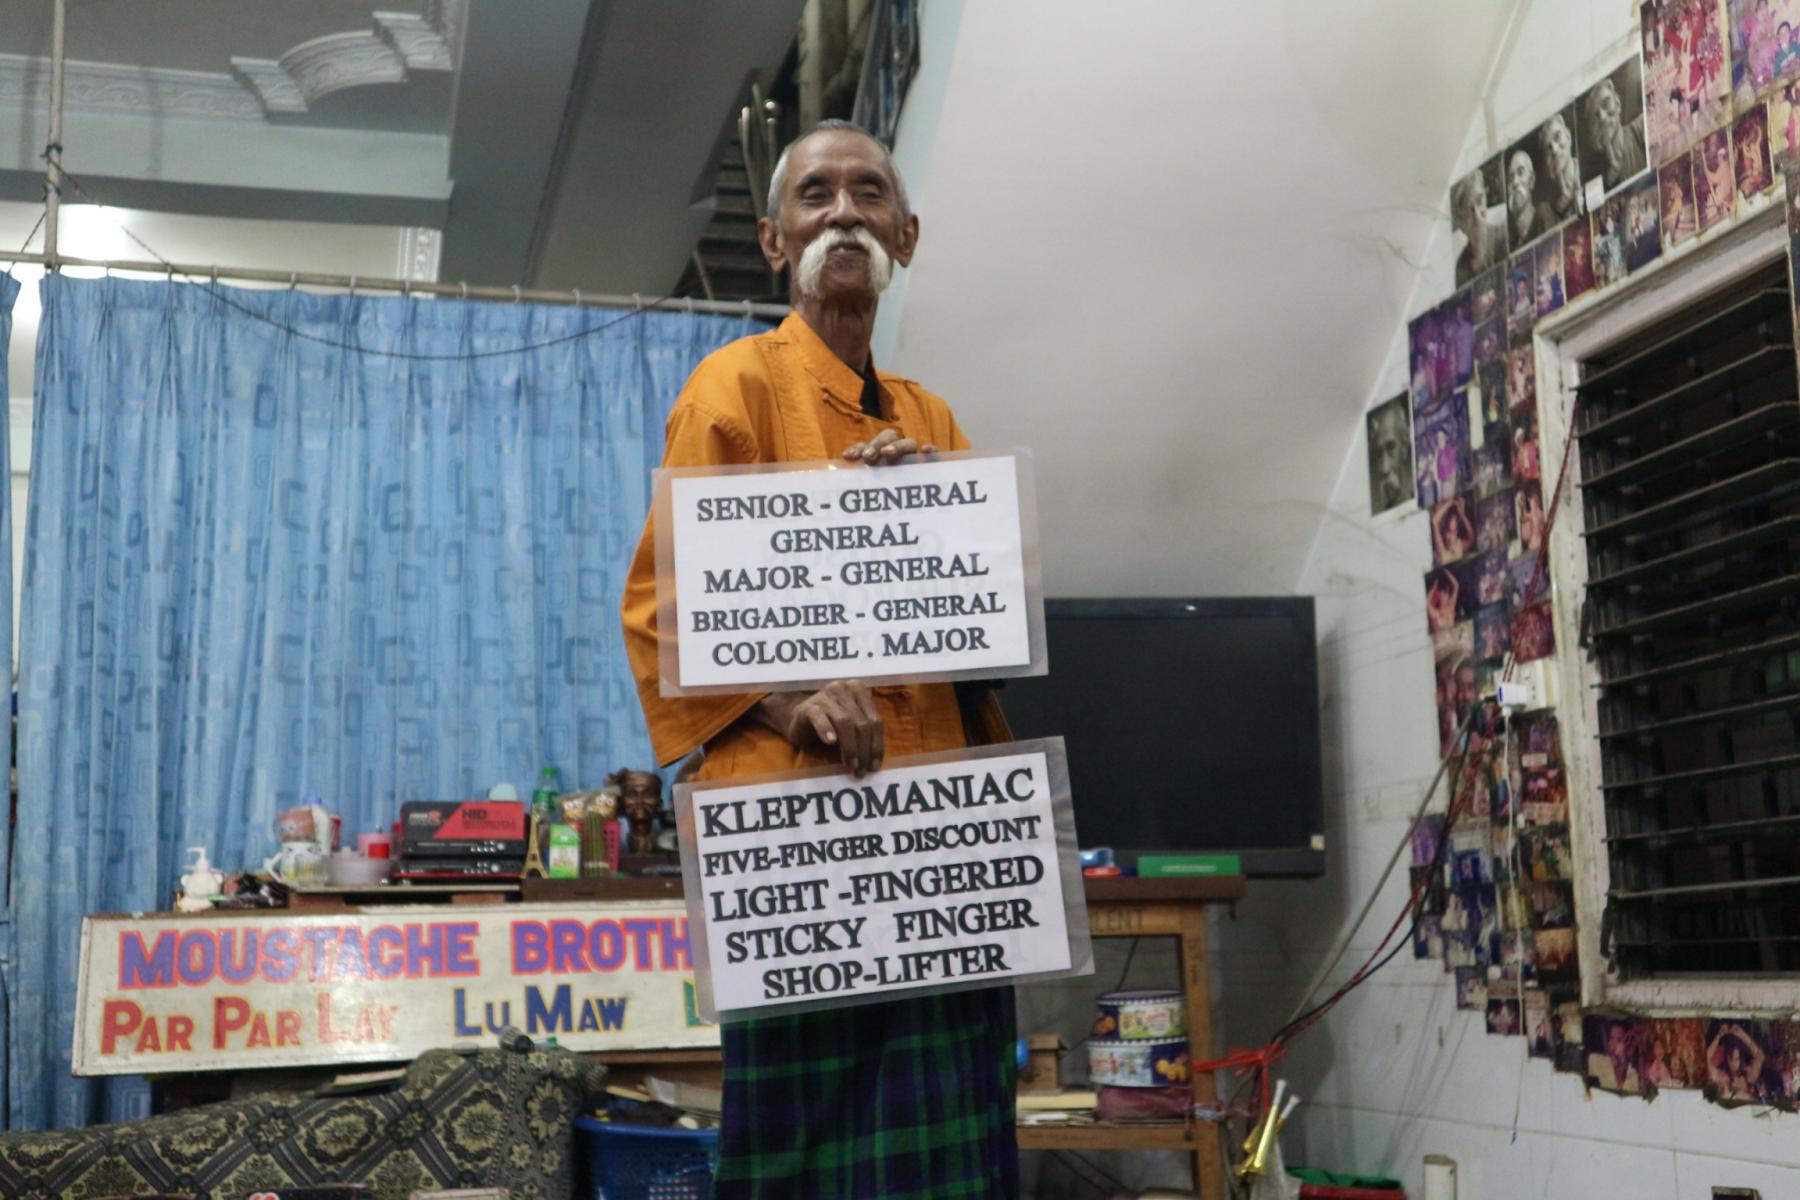 SENIOR - GENERAL
GENERAL
MAJOR - GENERAL
BRIGADIER - GENERAL
COLONEL . MAJOR
KLEPTOMANIAC
FIVE-FINGER DISCOUNT
LIGHT -FINGERED
STICKY FINGER
SHOP-LIFTER
MOUSTACHE BROTH
PAR PAR LAY LU MAW
HID